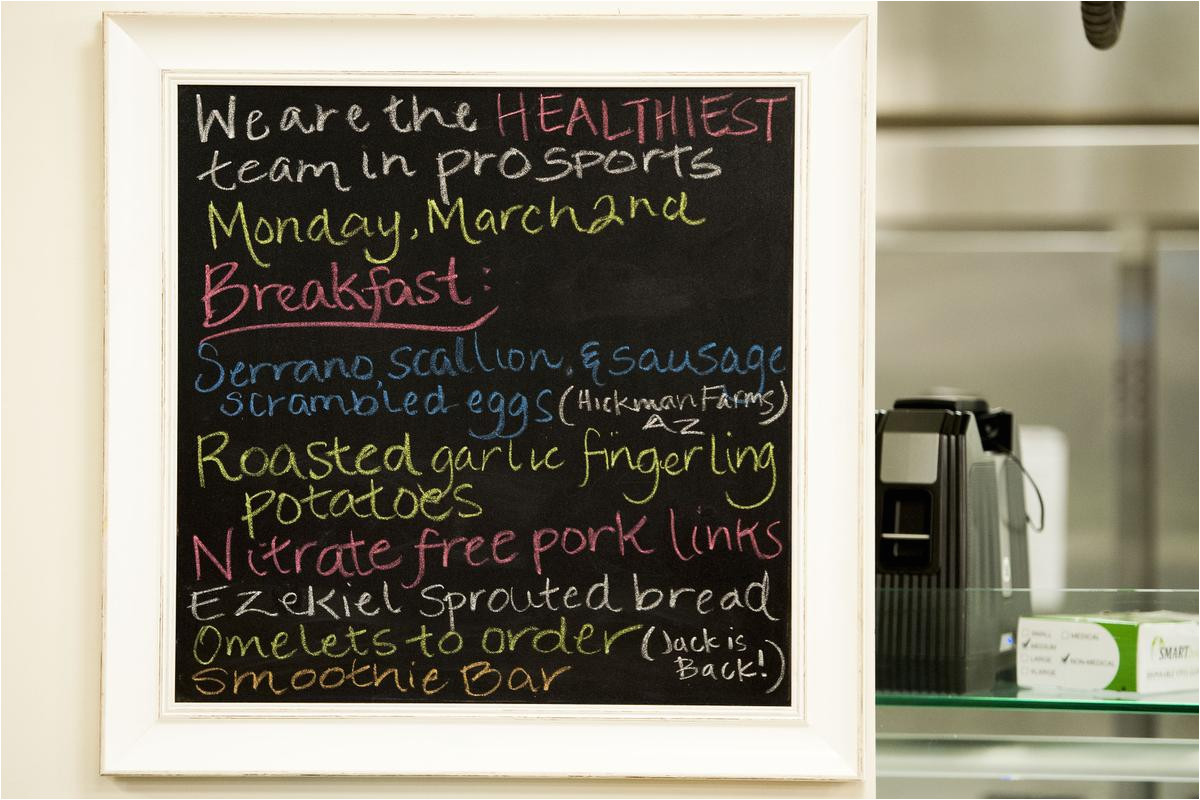 We are the HEALTHIEST
team in pro sports
Monday, March 2nd
Breakfast:
Serrano, scallion, & sausage
scrambled eggs (Hickman Farms)
AZ
Roasted garlic fingerling
potatoes
Nitrate free pork links
Ezekiel sprouted bread
Omelets to order (Jack is
Back!)
Smoothie Bar
SMALL
MEDICAL
MEDIUM
LARGE
NON-MEDICAL
XLARGE
SMART